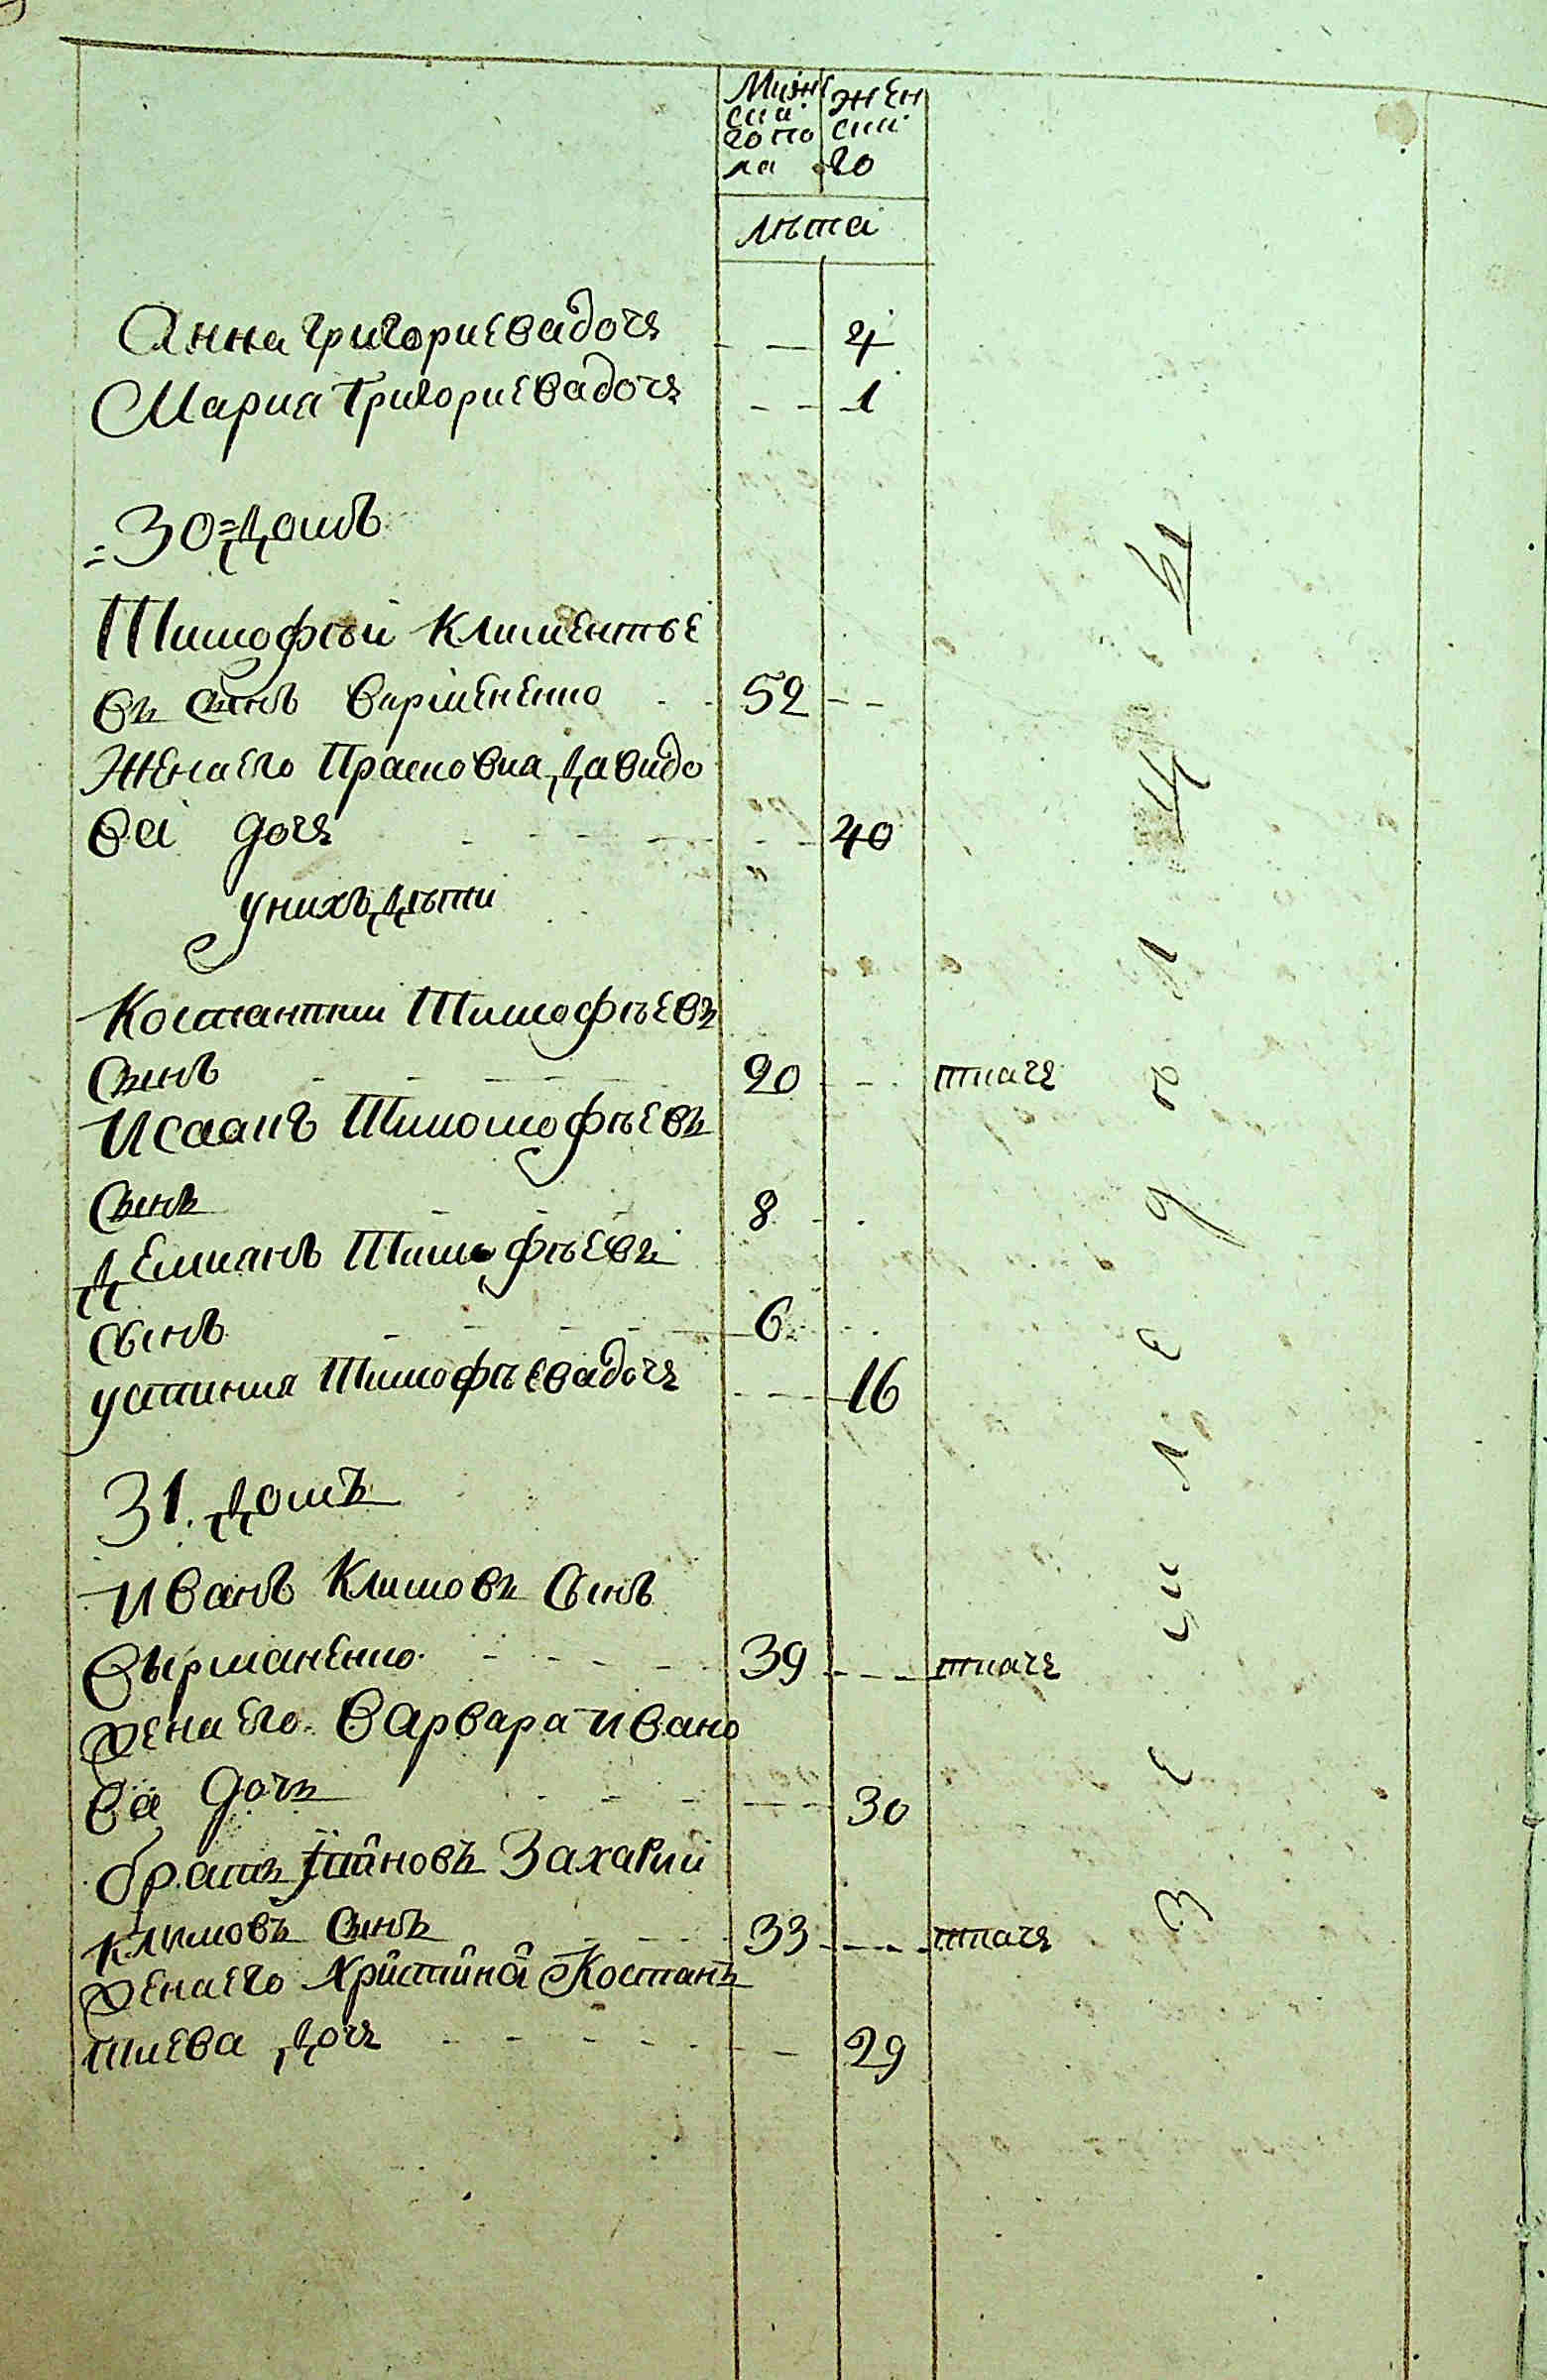 Мужс Жен
ска ска
го по го
ла
лѣта
Анна Григориева дочъ 4
Мариа Григориева дочъ 1
30 = Домъ
Тимофѣй Климентье
въ сынъ Вермененко 52
Жена его Прасковиа Давидо
ва дочъ 40
у нихъ дѣти
Костантин Тимофѣевъ
Сынъ 20 ткачъ
Исаакъ Тимомофѣевъ
Сынъ 8
Демианъ Тимофѣевъ
сынъ 6
устиниа Тимофѣева дочъ 16
31. Домъ
Иванъ Климовъ Сынъ
Вырманенко 39 ткачъ
жена его Варвара Ивано
ва дочъ 30
братъ Ивановъ Захарии
климовъ Сынъ 33 ткачъ
жена его Христина Костан
тиева дочъ 29
З е м л е д ѣ л ц ы